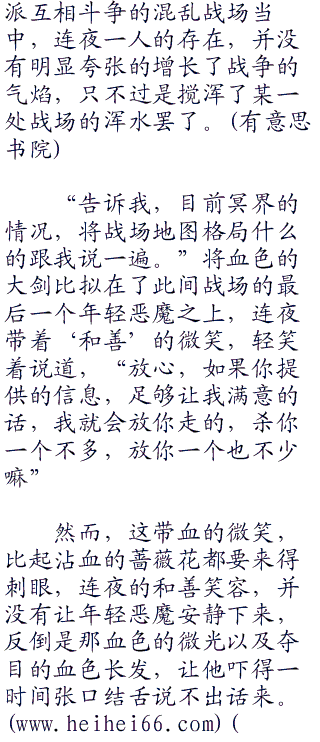 派互相斗争的混乱战场当
中，连夜一人的存在，并没
有明显夸张的增长了战争的
气焰，只不过是搅浑了某一
处战场的浑水罢了。(有意思
书院)
“告诉我，目前冥界的
情况，将战场地图格局什么
的跟我说一遍。”将血色的
大剑比拟在了此间战场的最
后一个年轻恶魔之上，连夜
带着‘和善’的微笑，轻笑
着说道，“放心，如果你提
供的信息，足够让我满意的
话，我就会放你走的，杀你
一个不多，放你一个也不少
嘛”
然而，这带血的微笑，
比起沾血的蔷薇花都要来得
刺眼，连夜的和善笑容，并
没有让年轻恶魔安静下来，
反倒是那血色的微光以及夺
目的血色长发，让他吓得一
时间张口结舌说不出话来。
(www.heihei66.com) (